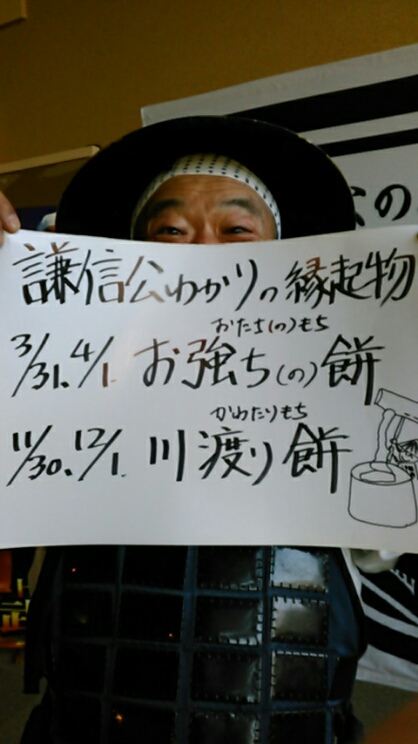 謙信公ゆかりの縁起物
おたち(の)もち
3/31、4/1、お強ち(の)餅
かわたりもち
11/30、12/1、川渡り餅
の